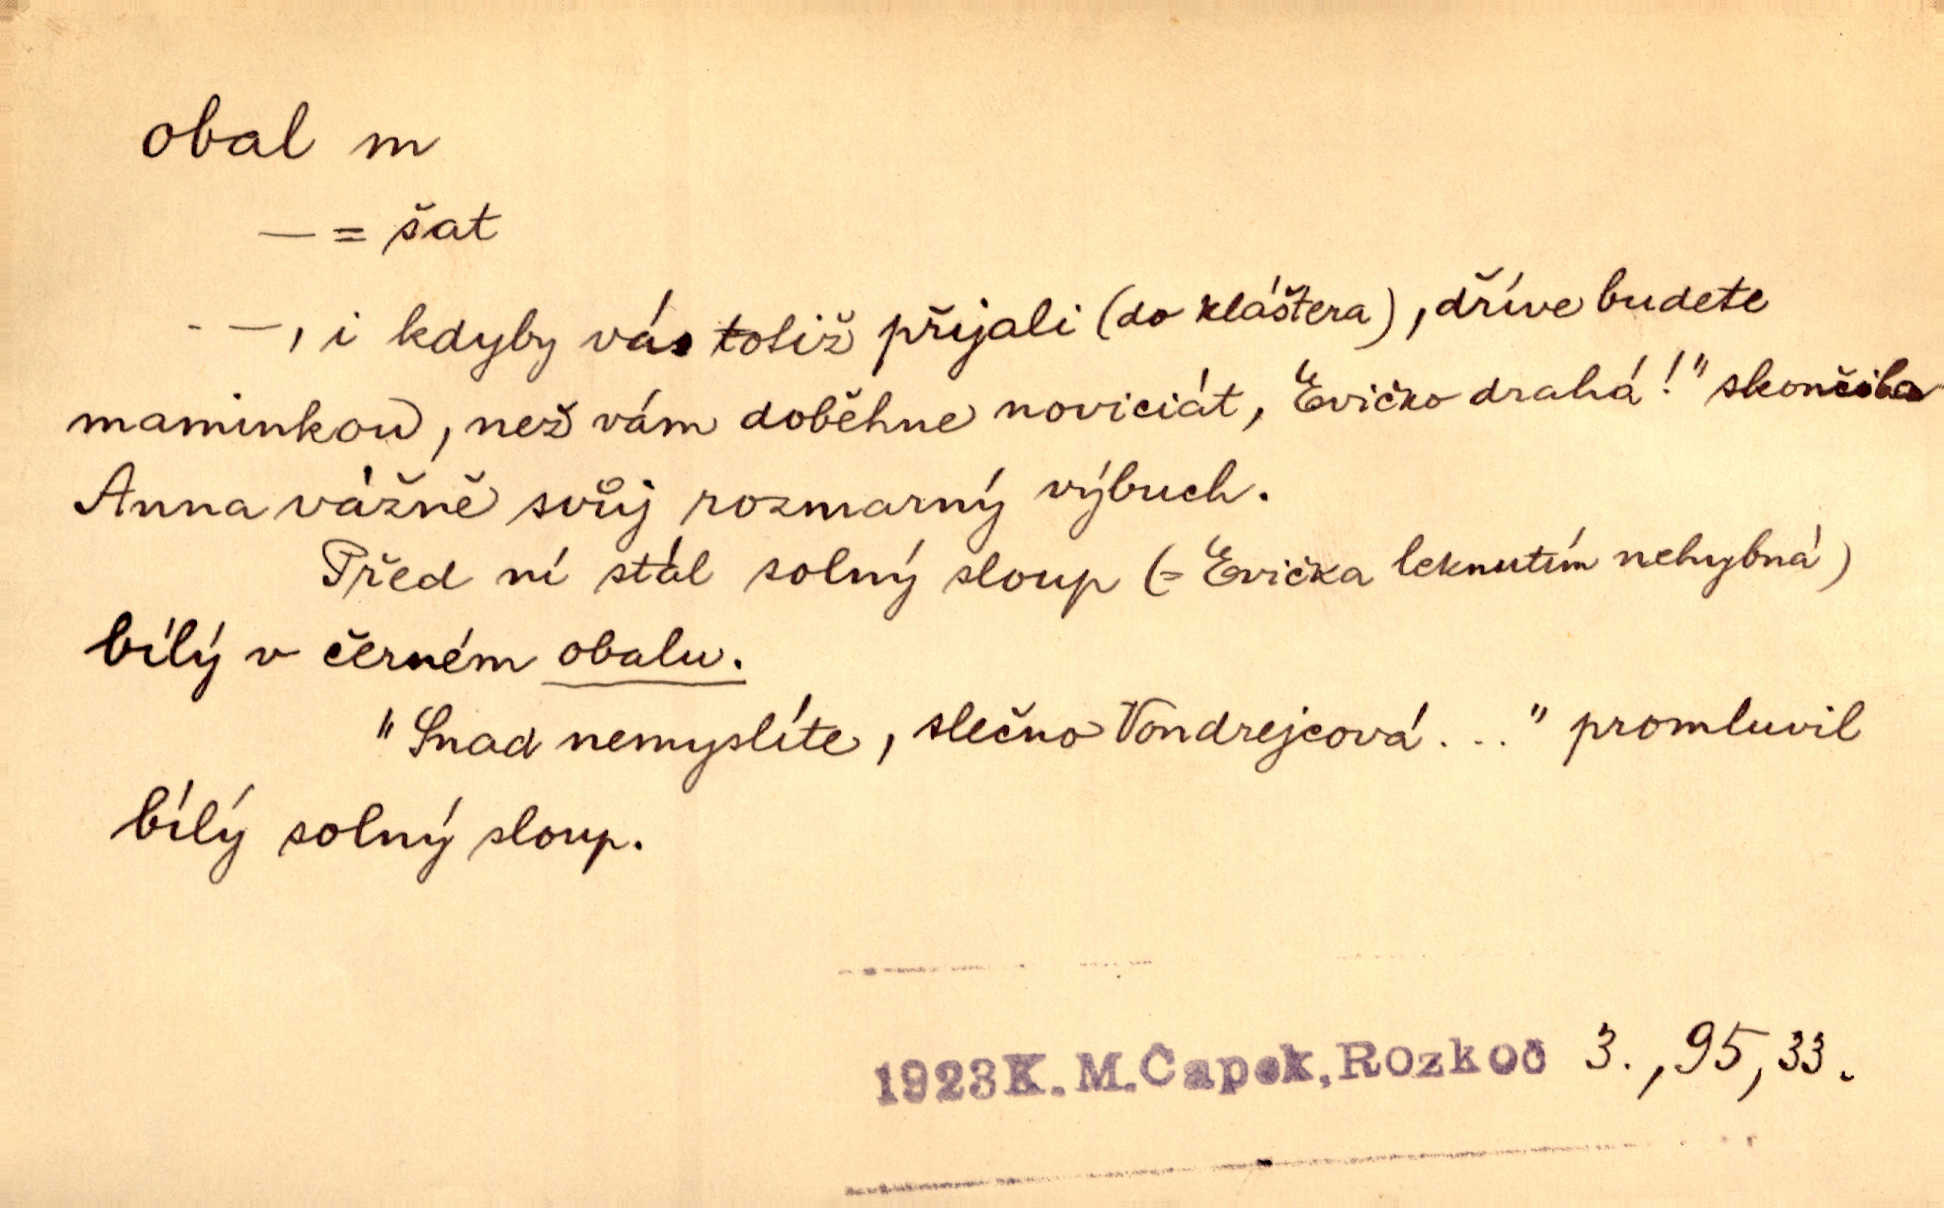 obal m
— = šat
- —, i kdyby vás totiž přijali (do kláštera), dříve budete
maminkou, než vám doběhne noviciát, Evičko drahá!" skončila
Anna vážně svůj rozmarný výbuch.
Před ní stál solný sloup (= Evička leknutím nehybná)
bílý v černém obalu.
"Snad nemyslíte, slečno Vondrejcová..." promluvil
bílý solný sloup.
1923 K. M. Čapek, Rozkoč 3., 95, 33.